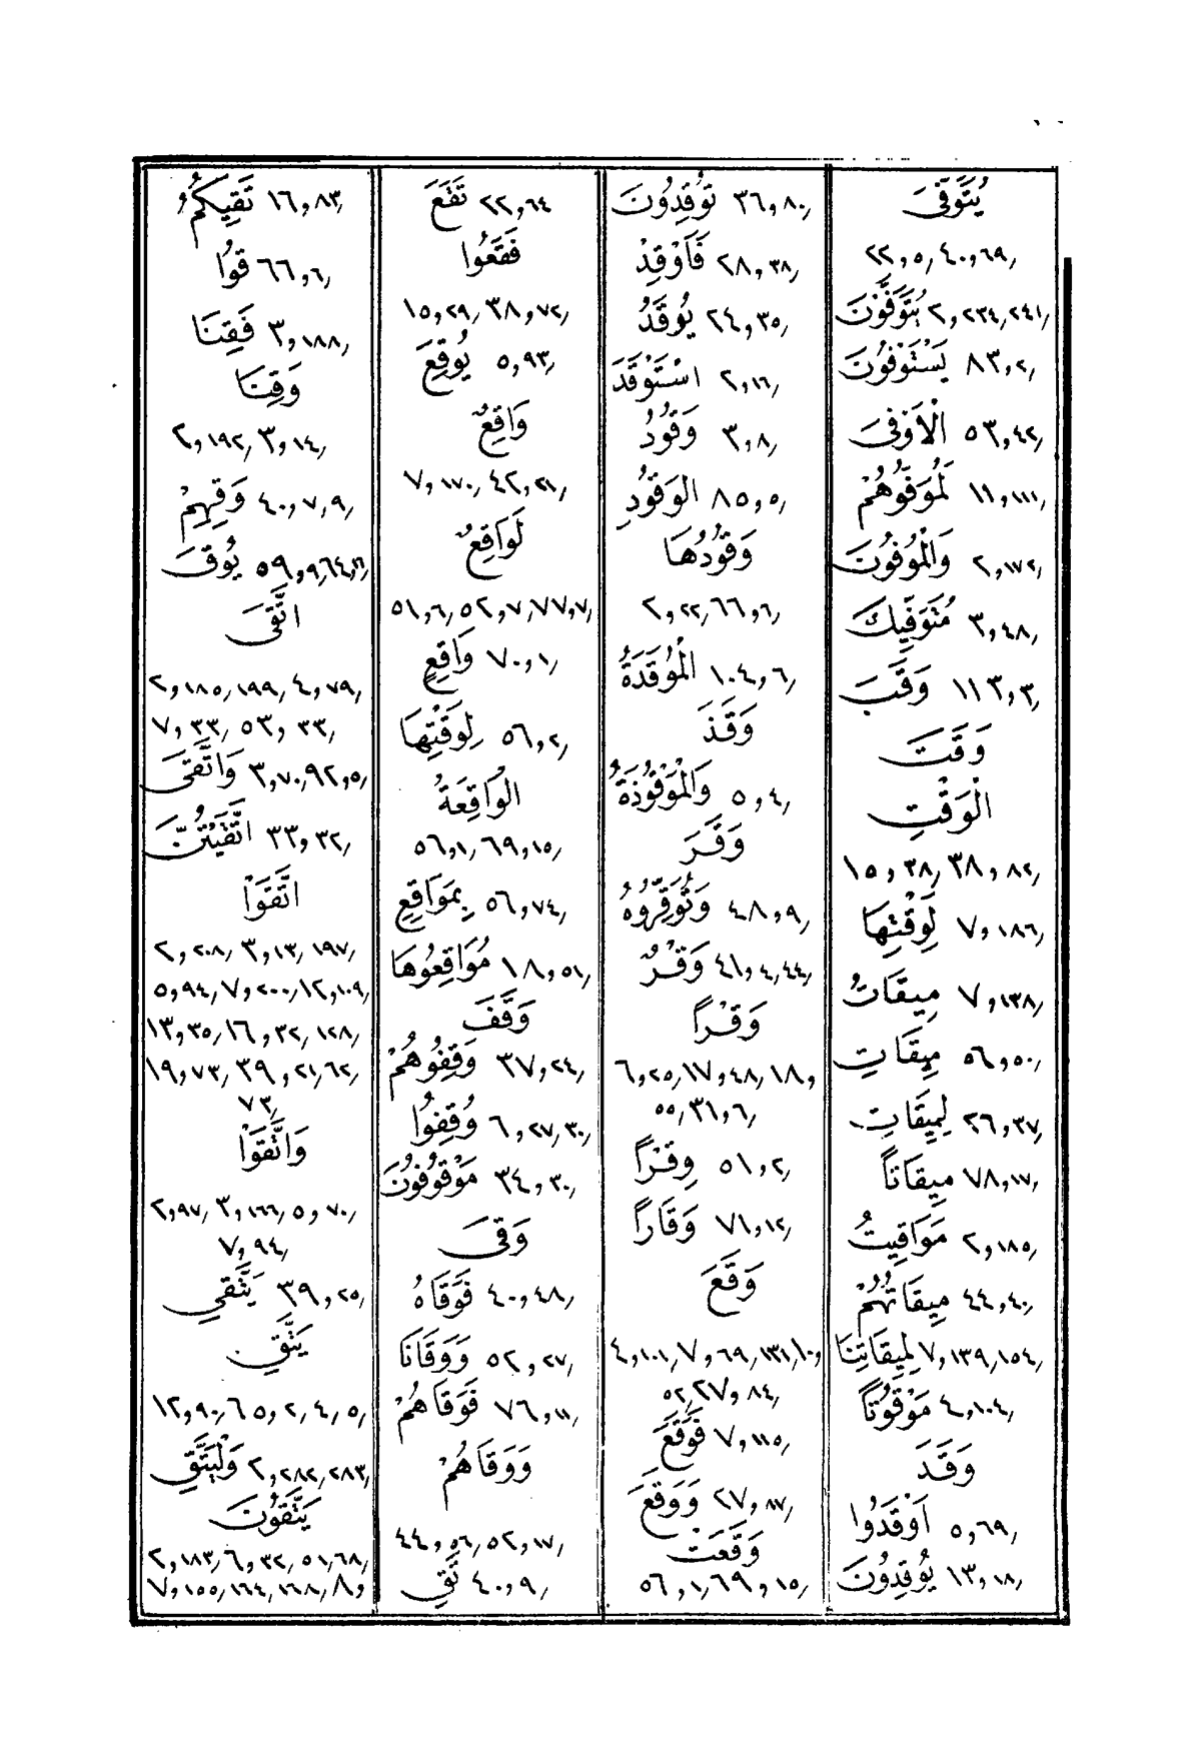 يُتَوَفَّى
٢٢,٥٫ ٤٠,٦٩٫
يُتَوَفَّوْنَ ٢,٢٣٤٫٢٤١٫
يَسْتَوْفُونَ ٨٣,٢٫
الْأَوْفَى ٥٣,٤٢٫
لَمُوَفُّوهُمْ ١١,١١١٫
وَالْمُوفُونَ ٢,١٧٢٫
مُتَوَفِّيكَ ٣,٤٨٫
وَقَبَ ١١٣,٣٫
وَقَتَ
الْوَقْتِ
١٥,٣٨٫ ٣٨,٨٢٫
لِوَقْتِهَا ٧,١٨٦٫
مِيقَاتُ ٧,١٣٨٫
مِيقَاتِ ٥٦,٥٠٫
لِمِيقَاتِ ٢٦,٣٧٫
مِيقَاتاً ٧٨,١٧٫
مَوَاقِيتُ ٢,١٨٥٫
مِيقَاتُهُمْ ٤٤,٤٠٫
لِمِيقَاتِنَا ٧,١٣٩٫١٥٤٫
مَوْقُوتاً ٤,١٠٤٫
وَقَدَ
أَوْقَدُوا ٥,٦٩٫
يُوقِدُونَ ١٣,١٨٫
تُوقِدُونَ ٣٦,٨٠٫
فَأَوْقِدْ ٢٨,٣٨٫
يُوقَدُ ٢٤,٣٥٫
اسْتَوْقَدَ ٢,١٦٫
وَقُودُ ٣,٨٫
الوَقُودِ ٨٥,٥٫
وَقُودُهَا
٢,٢٢٫ ٦٦,٦٫
الْمُوقَدَةُ ١٠٤,٦٫
وَقَذَ
وَالْمَوْقُوذَةُ ٥,٤٫
وَقَرَ
وَتُوَقِّرُوهُ ٤٨,٩٫
وَقْرٌ ٤١,٤٫٤٤٫
وَقْراً
٦,٢٥٫١٧,٤٨٫١٨,
٥٥٫ ٣١,٦٫
وِقْراً ٥١,٢٫
وَقَاراً ٧١,١٢٫
وَقَعَ
٤,١٠١٫٧,٦٩٫١٣١٫١٠,
٥٢٫ ٢٧,٨٤٫
فَوَقَعَ ٧,١١٥٫
وَوَقَعَ ٢٧,٨٧٫
وَقَعَتِ
٥٦,١٫ ٦٩,١٥٫
تَقَعَ ٢٢,٦٤
فَقَعُوا
١٥,٢٩٫ ٣٨,٧٢٫
يُوقِعَ ٥,٩٣٫
وَاقِعٌ
٧,١٧٠٫ ٤٢,٢١٫
لَوَاقِعٌ
٥١,٦٫ ٥٢,٧٫ ٧٧,٧٫
وَاقِعٍ ٧٠,١٫
لِوَقْتِهَا ٥٦,٢٫
الْوَاقِعَةُ
٥٦,١٫ ٦٩,١٥٫
بِمَوَاقِعِ ٥٦,٧٤٫
مُوَاقِعُوهَا ١٨,٥١٫
وَقَفَ
وَقِفُوهُمْ ٣٧,٢٤٫
وُقِفُوا ٦,٢٧٫٣٠٫
مَوْقُوفُونَ ٣٤,٣٠٫
وَقَى
فَوَقَاهُ ٤٠,٤٨٫
وَوَقَانَا ٥٢,٢٧٫
فَوَقَاهُمْ ٧٦,١١٫
وَوَقَاهُمْ
٤٤,٥٦٫ ٥٢,١٧٫
تَقِ ٤٠,٩٫
تَقِيكُمُ ١٦,٨٣٫
قُوا ٦٦,٦٫
فَقِنَا ٣,١٨٨٫
وَقِنَا
٢,١٩٢٫ ٣,١٤٫
وَقِهِمْ ٤٠,٧٫٩٫
يُوقَ ٥٩,٩٫٦٤,١٦٫
اتَّقَى
٢,١٨٥٫١٩٩٫ ٤,٧٩٫
٧,٣٣٫ ٥٣,٣٣٫
وَاتَّقَى ٣,٧٠٫٩٢,٥٫
اتَّقَيْتُنَّ ٣٣,٣٢٫
اتَّقَوْا
٢,٢٠٨٫ ٣,١٣٫١٩٧٫
٥,٩٤٫ ٧,٢٠٠٫١٢,١٠٩٫
١٣,٣٥٫١٦,٣٢٫١٢٨٫
١٩,٧٣٫ ٣٩,٢١٫٦٢٫
٧٣٫
وَاتَّقَوْا
٢,٩٧٫ ٣,١٦٦٫ ٥,٧٠٫
٧,٩٤٫
يَتَّقِي ٣٩,٢٥٫
يَتَّقِ
١٢,٩٠٫ ٦٥,٢٫٤٫٥٫
وَلْيَتَّقِ ٢,٢٨٢٫٢٨٣٫
يَتَّقُونَ
٢,١٨٣٫ ٦,٣٢٫٥١٫٦٨٫
٧,١٥٥٫١٦٤٫١٦٨٫ ٨,